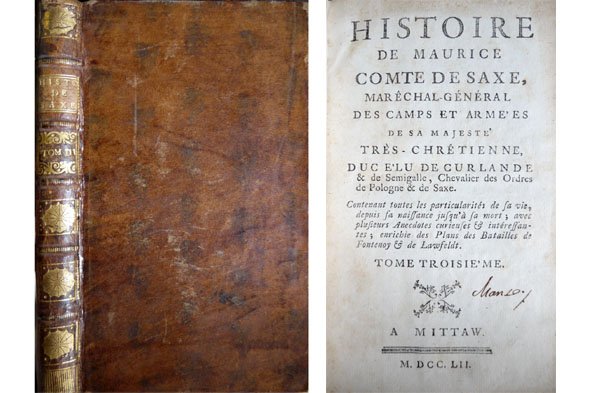 HIST
DE
SAXE
TOM
HISTOIRE
DE MAURICE
COMTE DE SAXE,
MARÉCHAL-GÉNÉRAL
DES CAMPS ET ARME'ES
DE SA MAJESTÉ
TRÈS-CHRÉTIENNE,
DUC E'LU DE CURLANDE
& de Semigalle, Chevalier des Ordres
de Pologne & de Saxe.
Contenant toutes les particularités de ſa vie,
depuis ſa naiſſance juſqu'à ſa mort; avec
pluſieurs Anecdotes curieuſes & intéreſſan-
tes; enrichie des Plans des Batailles de
Fontenoy & de Lawfeldt.
TOME TROISIE'ME.
A MITTAW.
M. DCC. LII.